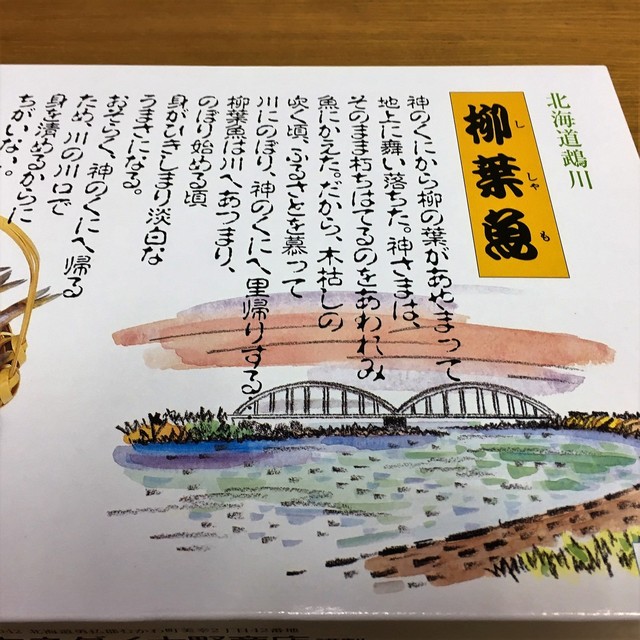 北海道鵡川
柳葉魚
ししゃも
神のくにから柳の葉があやまって
地上に舞い落ちた。神さまは、
そのまま朽ちはてるのをあわれみ
魚にかえた。だから、木枯しの
吹く頃、ふるさとを慕って
川にのぼり、神のくにへ里帰りする。
柳葉魚は川へあつまり、
のぼり始める頃
身がひきしまり淡白な
うまさになる。
おそらく、神のくにへ帰る
ため、川の川口で
身を清めるからに
ちがいない。